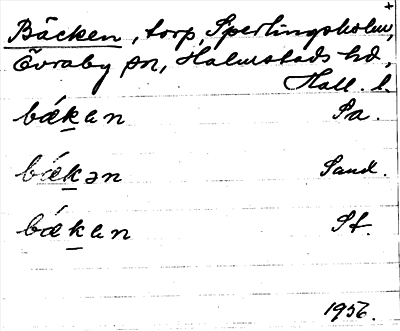 +
Bäcken, torp, Sperlingsholm,
Övraby sn, Halmstads hd,
Hall. l.
bǽkan Sa.
bǽkən Sand.
bǽkan St.
1956.